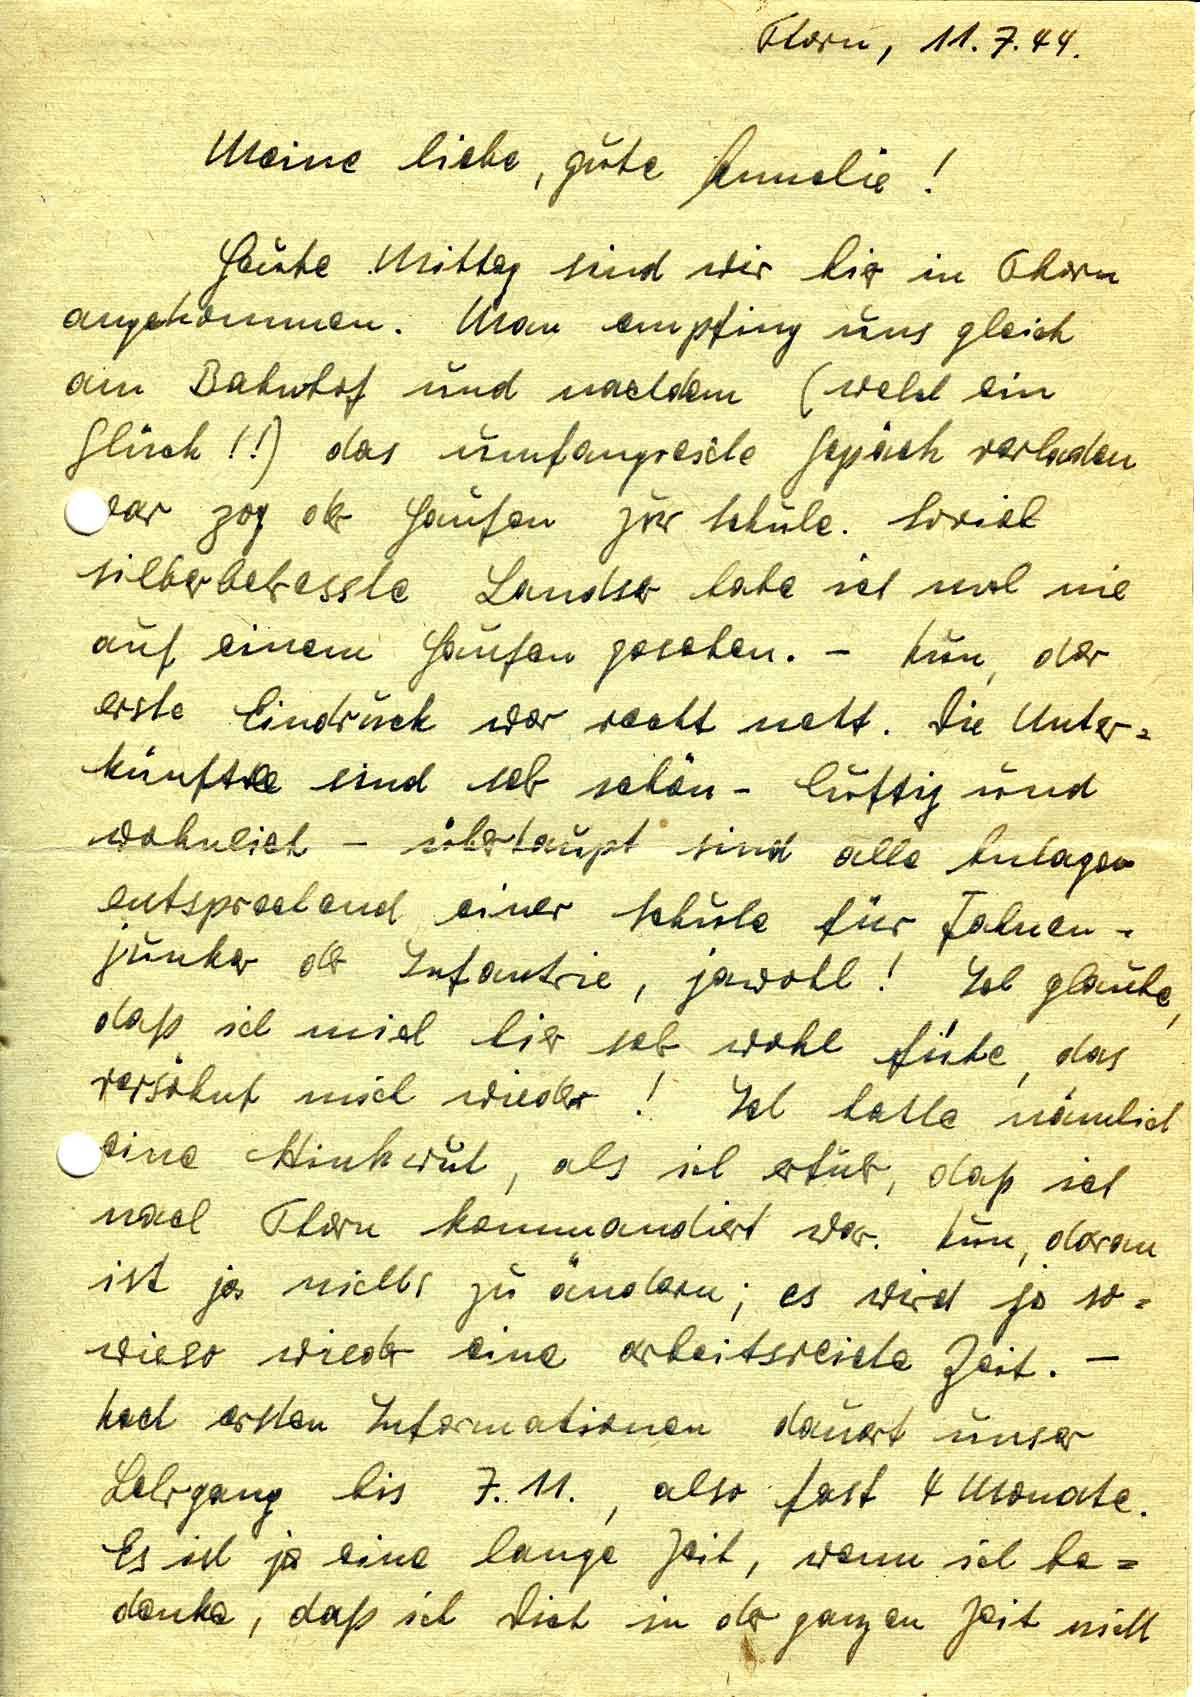 Thorn, 11.7.44.
Meine liebe, gute Annelie!
Heute Mittag sind wir hier in Thorn
angekommen. Man empfing uns gleich
am Bahnhof und nachdem (welch ein
Glück!!) das umfangreiche Gepäck verladen
war zog der Haufen zur Schule. Soviel
silberbetresste Landser habe ich noch nie
auf einem Haufen gesehen. – Nun, der
erste Eindruck war recht nett. Die Unter=
künfte sind sehr schön – luftig und
wohnlich – überhaupt sind alle Anlagen
entsprechend einer Schule für Fahnen-
junker der Infantrie, jawohl! Ich glaube,
daß ich mich hier sehr wohl fühle, das
versöhnt mich wieder! Ich hatte nämlich
eine Stinkwut, als ich erfuhr, daß ich
nach Thorn kommandiert war. Nun, daran
ist ja nichts zu ändern; es wird ja so=
wieso wieder eine arbeitsreiche Zeit. –
Nach ersten Informationen dauert unser
Lehrgang bis 7.11., also fast 4 Monate.
Es ist ja eine lange Zeit, wenn ich be=
denke, daß ich Dich in der ganzen Zeit nicht